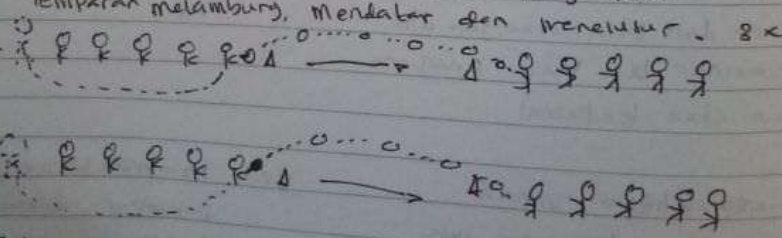 lemparan melambung, mendatar dan menelusur. 8x